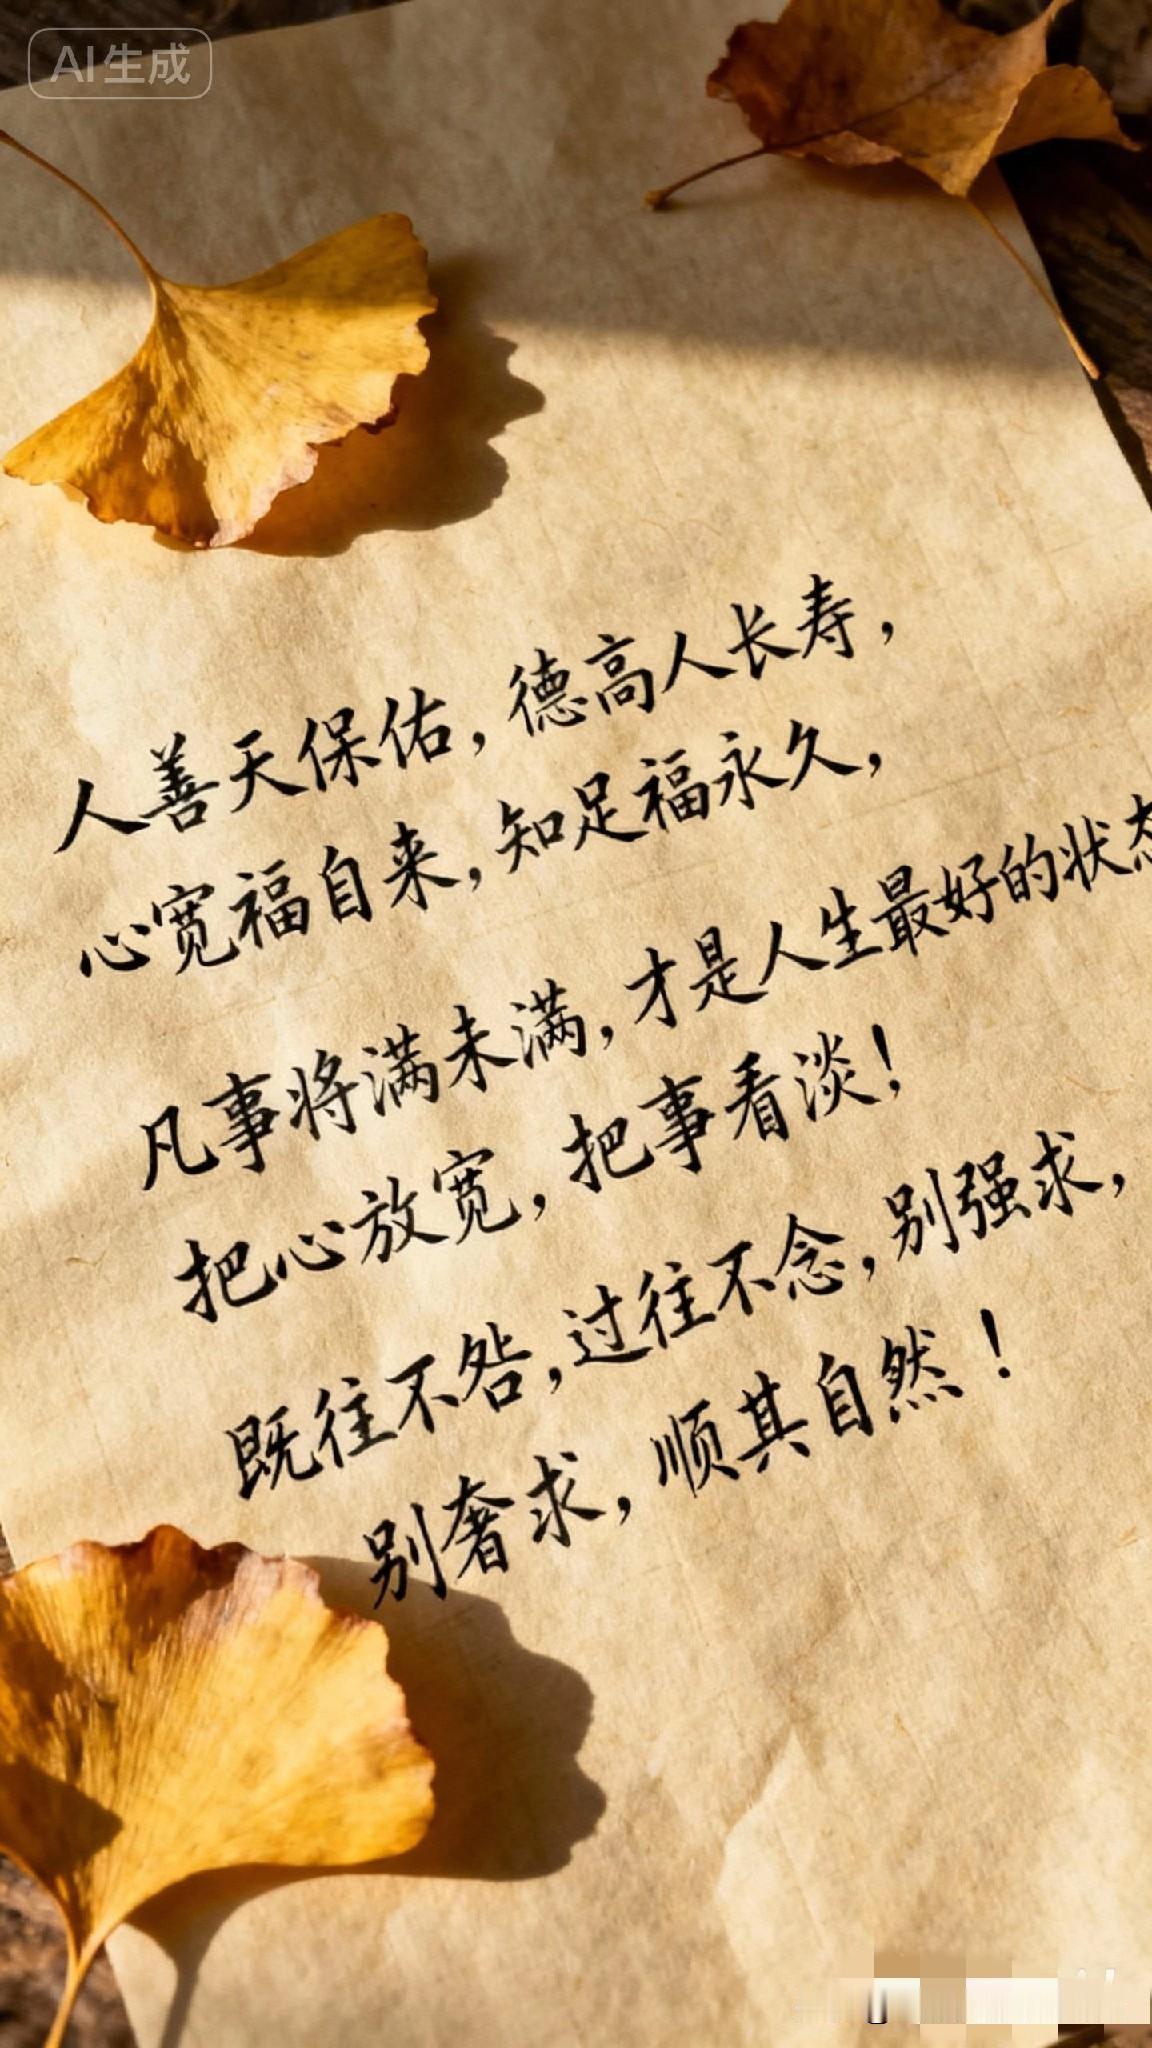 AI生成
人善天保佑，德高人长寿，
心宽福自来，知足福永久，
凡事将满未满，才是人生最好的状态
把心放宽，把事看淡！
既往不咎，过往不念，别强求，
别奢求，顺其自然！